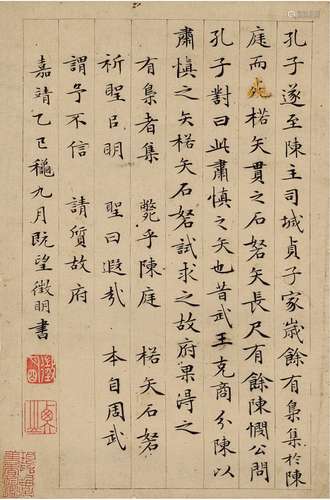 孔子遂至陳主司城貞子家歲餘有隼集於陳
庭而死楛矢貫之石砮矢長尺有餘陳憫公問
孔子對曰此肅慎之矢也昔武王克商分陳以
肅慎之矢楛矢石砮試求之故府果得之
有隼者集 斃乎陳庭 楛矢石砮
祈聖臣明 聖曰遐哉 本自周武
謂予不信 請質故府
嘉靖乙巳穐九月既望徵明書